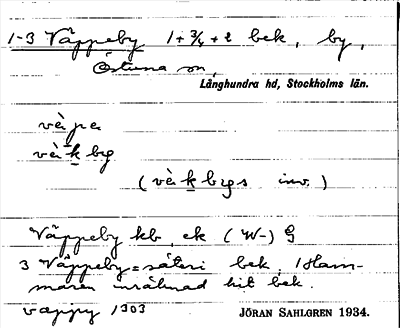 1-3 Väppeby 1 + 3/4 + 2 bek, by,
Östuna sn,
Långhundra hd, Stockholms län.
väpa
väkbg
(väkbygs inv.)
Väppeby kb, ek (W-) G
3 Väppeby = säteri bek, 1 Ham-
maren inräknad hit bek.
vappy 1303
JÖRAN SAHLGREN 1934.